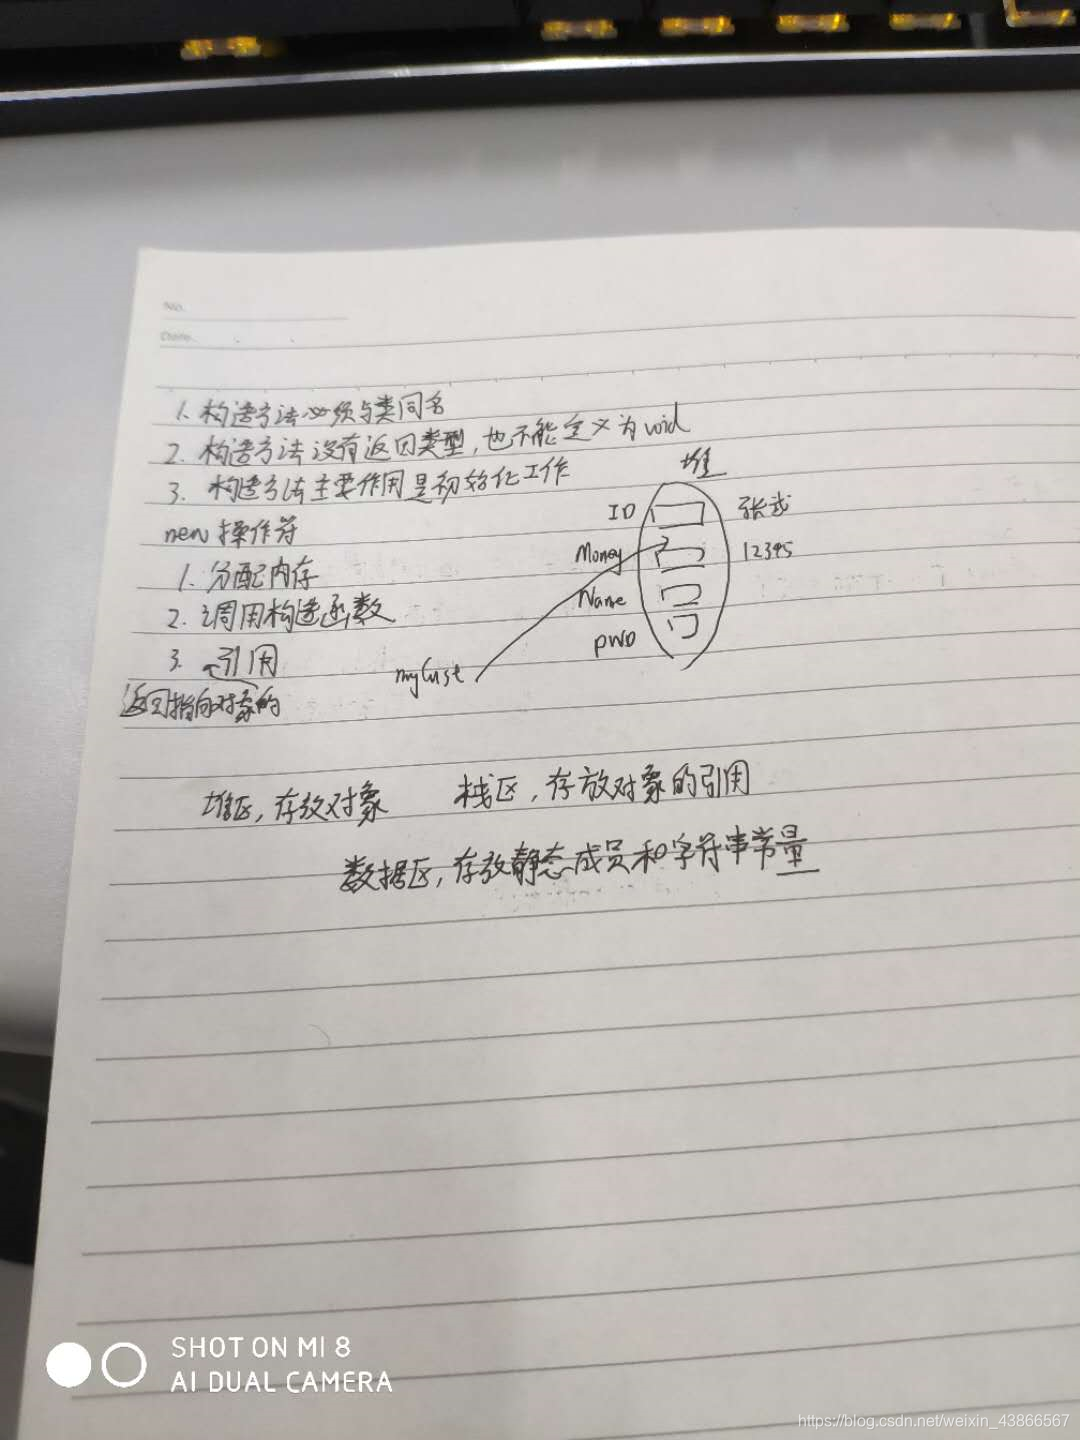 No.
Date.
1. 构造方法必须与类同名
2. 构造方法没有返回类型,也不能定义为void
3. 构造方法主要作用是初始化工作
new 操作符
1. 分配内存
2. 调用构造函数
3. 引用
返回指向对象的
堆
ID 张
Money 12345
Name
PWD
myCust
堆区,存放对象 栈区,存放对象的引用
数据区,存放静态成员和字符串常量
SHOT ON MI 8
AI DUAL CAMERA
https://blog.csdn.net/weixin_43866567